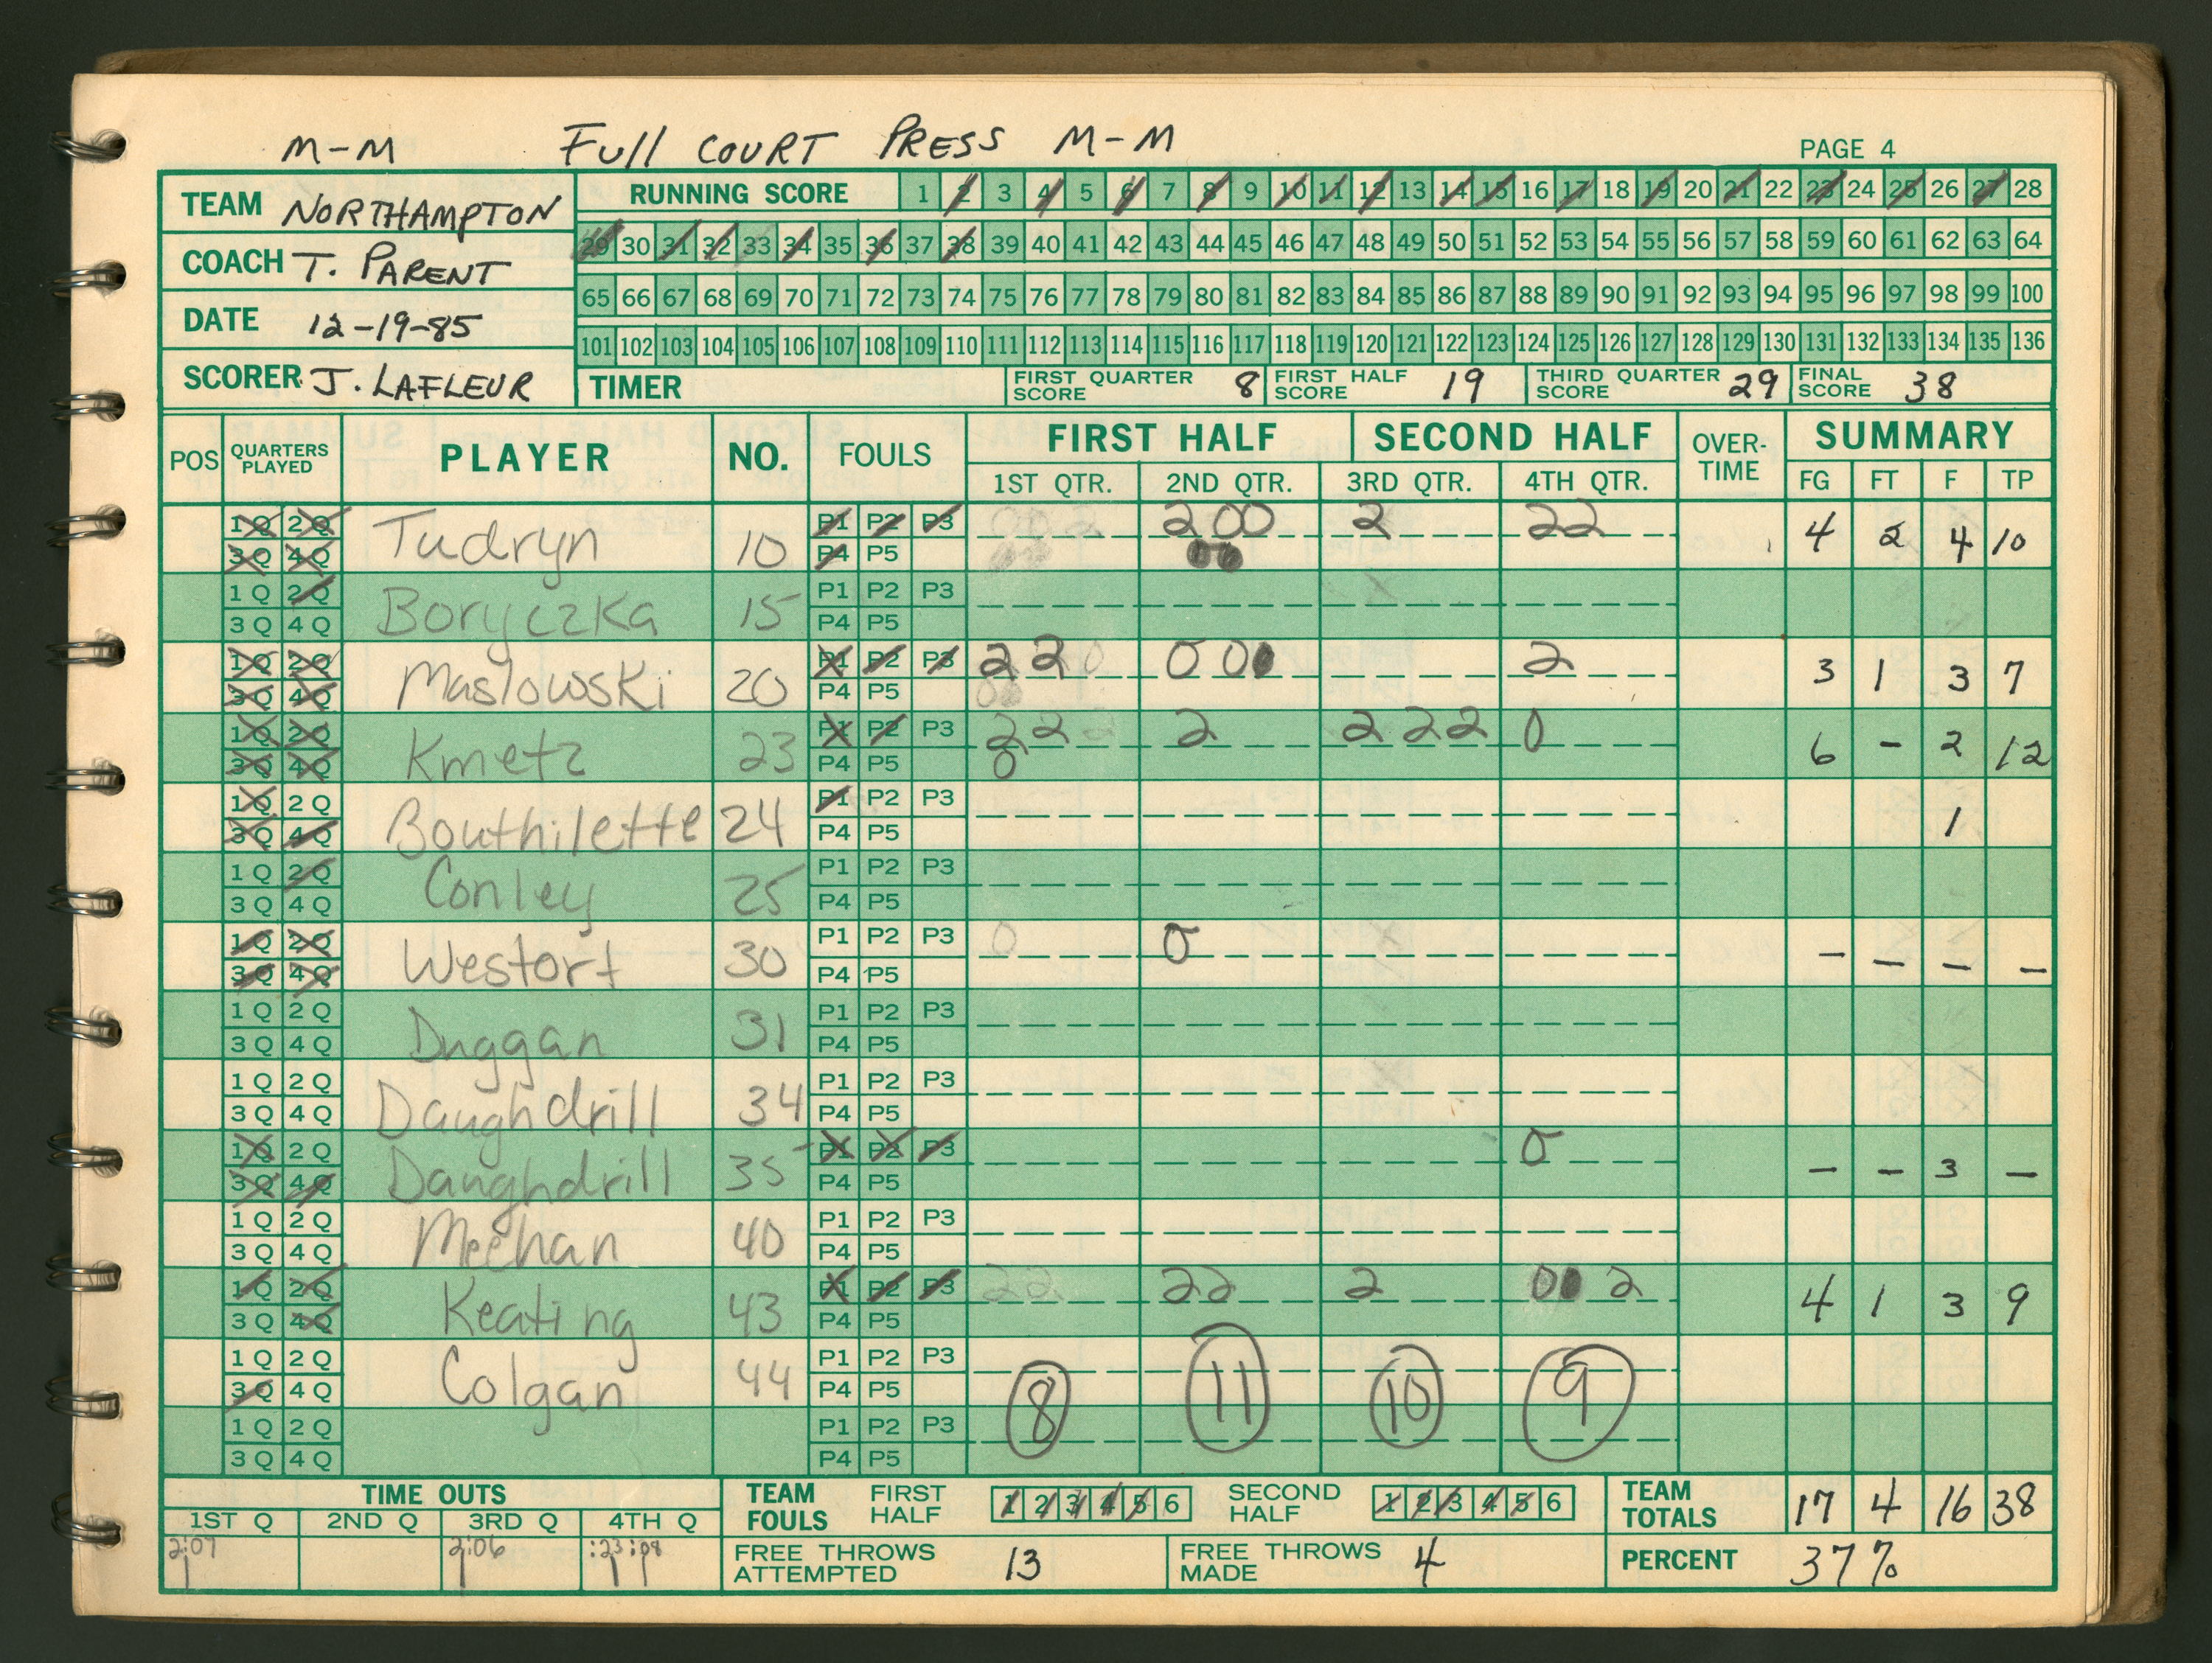 M-M Full COURT PRESS M-M
PAGE 4
TEAM NORTHAMPTON
COACH T. PARENT
DATE 12-19-85
SCORER J. LAFLEUR
RUNNING SCORE 1 2 3 4 5 6 7 8 9 10 11 12 13 14 15 16 17 18 19 20 21 22 23 24 25 26 27 28
29 30 31 32 33 34 35 36 37 38 39 40 41 42 43 44 45 46 47 48 49 50 51 52 53 54 55 56 57 58 59 60 61 62 63 64
65 66 67 68 69 70 71 72 73 74 75 76 77 78 79 80 81 82 83 84 85 86 87 88 89 90 91 92 93 94 95 96 97 98 99 100
101 102 103 104 105 106 107 108 109 110 111 112 113 114 115 116 117 118 119 120 121 122 123 124 125 126 127 128 129 130 131 132 133 134 135 136
TIMER FIRST QUARTER SCORE 8 FIRST HALF SCORE 19 THIRD QUARTER SCORE 29 FINAL SCORE 38
POS QUARTERS PLAYED PLAYER NO. FOULS FIRST HALF SECOND HALF OVER-TIME SUMMARY
1ST QTR. 2ND QTR. 3RD QTR. 4TH QTR. FG FT F TP
1Q 2Q Tudryn 10 P1 P2 P3 200 2 22 4 2 4 10
3Q 4Q P4 P5
1Q 2Q Boryczka 15 P1 P2 P3
3Q 4Q P4 P5
1Q 2Q Maslowski 20 P1 P2 P3 220 00 2 3 1 3 7
3Q 4Q P4 P5
1Q 2Q Kmetz 23 P1 P2 P3 22 2 222 0 6 - 2 12
3Q 4Q P4 P5 0
1Q 2Q Bouthilette 24 P1 P2 P3 1
3Q 4Q P4 P5
1Q 2Q Conley 25 P1 P2 P3
3Q 4Q P4 P5
1Q 2Q Westort 30 P1 P2 P3 0 0 - - - -
3Q 4Q P4 P5
1Q 2Q Duggan 31 P1 P2 P3
3Q 4Q P4 P5
1Q 2Q Daughdrill 34 P1 P2 P3
3Q 4Q P4 P5
1Q 2Q Daughdrill 35 P1 P2 P3 0 - - 3 -
3Q 4Q P4 P5
1Q 2Q Meehan 40 P1 P2 P3
3Q 4Q P4 P5
1Q 2Q Keating 43 P1 P2 P3 22 22 2 0 2 4 1 3 9
3Q 4Q P4 P5
1Q 2Q Colgan 44 P1 P2 P3
3Q 4Q P4 P5 8 11 10 9
1Q 2Q P1 P2 P3
3Q 4Q P4 P5
TIME OUTS
1ST Q 2ND Q 3RD Q 4TH Q
2:07 2:06 :23 :08
TEAM FOULS FIRST HALF 1 2 3 4 5 6 SECOND HALF 1 2 3 4 5 6
TEAM TOTALS 17 4 16 38
FREE THROWS ATTEMPTED 13 FREE THROWS MADE 4 PERCENT 37%